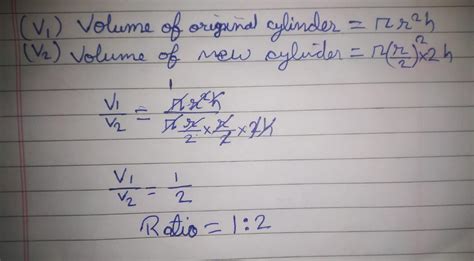 (V₁) Volume of original cylinder = πr²h
(V₂) Volume of new cylinder = π(r/2)² × 2h
V₁/V₂ = 1 πr²h / π r/2 × r/2 × 2h
V₁/V₂ = 1/2
Ratio = 1:2